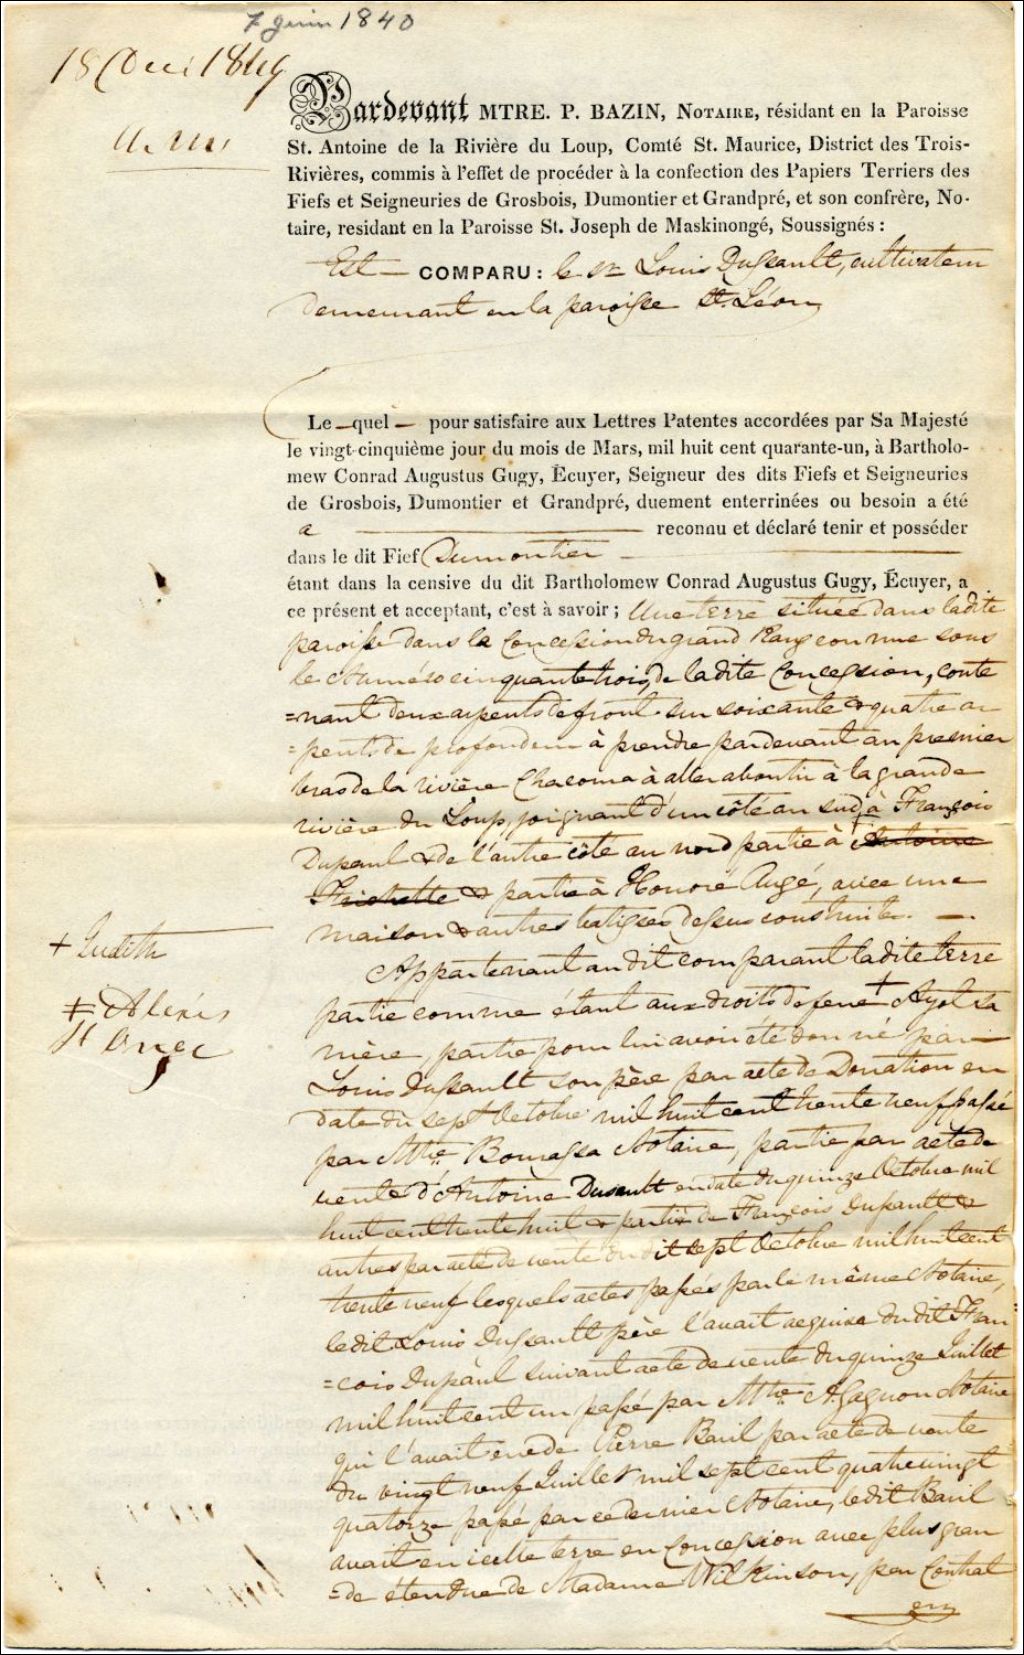 7 juin 1840
18 1849
Pardevant MTRE. P. BAZIN, NOTAIRE, résidant en la Paroisse
St. Antoine de la Rivière du Loup, Comté St. Maurice, District des Trois-
Rivières, commis à l'effet de procéder à la confection des Papiers Terriers des
Fiefs et Seigneuries de Grosbois, Dumontier et Grandpré, et son confrère, No-
taire, residant en la Paroisse St. Joseph de Maskinongé, Soussignés :
Est — COMPARU : le Sr Louis Dussault, cultivateur
demeurant en la paroisse St. Léon
Le — quel — pour satisfaire aux Lettres Patentes accordées par Sa Majesté
le vingt-cinquième jour du mois de Mars, mil huit cent quarante-un, à Bartholo-
mew Conrad Augustus Gugy, Écuyer, Seigneur des dits Fiefs et Seigneuries
de Grosbois, Dumontier et Grandpré, duement enterrinées ou besoin a été
a reconnu et déclaré tenir et posséder
dans le dit Fief Dumontier
étant dans la censive du dit Bartholomew Conrad Augustus Gugy, Écuyer, a
ce présent et acceptant, c'est à savoir ; Une terre située dans ladite
paroisse dans la Concession du grand Rang connue sous
le Numéro cinquante trois, de ladite Concession, conte
=nant deux arpents de front sur soixante & quatre ar
=pents de profondeur à prendre pardevant au premier
bras de la rivière Chacoura à aller aboutir à la grande
rivière du Loup, joignant d'un côté au sud à François
Dupaul & de l'autre côté au nord partie à Antoine
Frichette & partie à Honoré Augé, avec une
maison & autres batisses dessus construites. —
Appartenant au dit comparant ladite terre
+ Judith
partie comme étant aux droits de feue + Ayot sa
‡ Alexis
St Onge
mère, partie pour lui avoir été donné par
Louis Dussault son père par acte de Donation en
date du sept Octobre mil huit cent trente neuf passé
par Mtre Bourassa Notaire, partie par acte de
vente d'Antoine Dusault en date du quinze Octobre mil
huit cent trente huit & partie de François Dussault &
autres par acte de vente du dit sept Octobre mil huit cent
trente neuf lesquels actes passés par le même Notaire,
ledit Louis Dussault père l'avait acquise du dit Fran
=cois Dupaul suivant acte de vente du quinze Juillet
mil huit cent un passé par Mtre A. Gagnon Notaire
qui l'avait eue de Pierre Baril par acte de vente
du vingt neuf Juillet mil sept cent quatrevingt
quatorze passé par ce dernier Notaire, ledit Baril
avait eu icelle terre en Concession avec plus gran
=de étendue de Madame Wilkinson, par Contrat
en